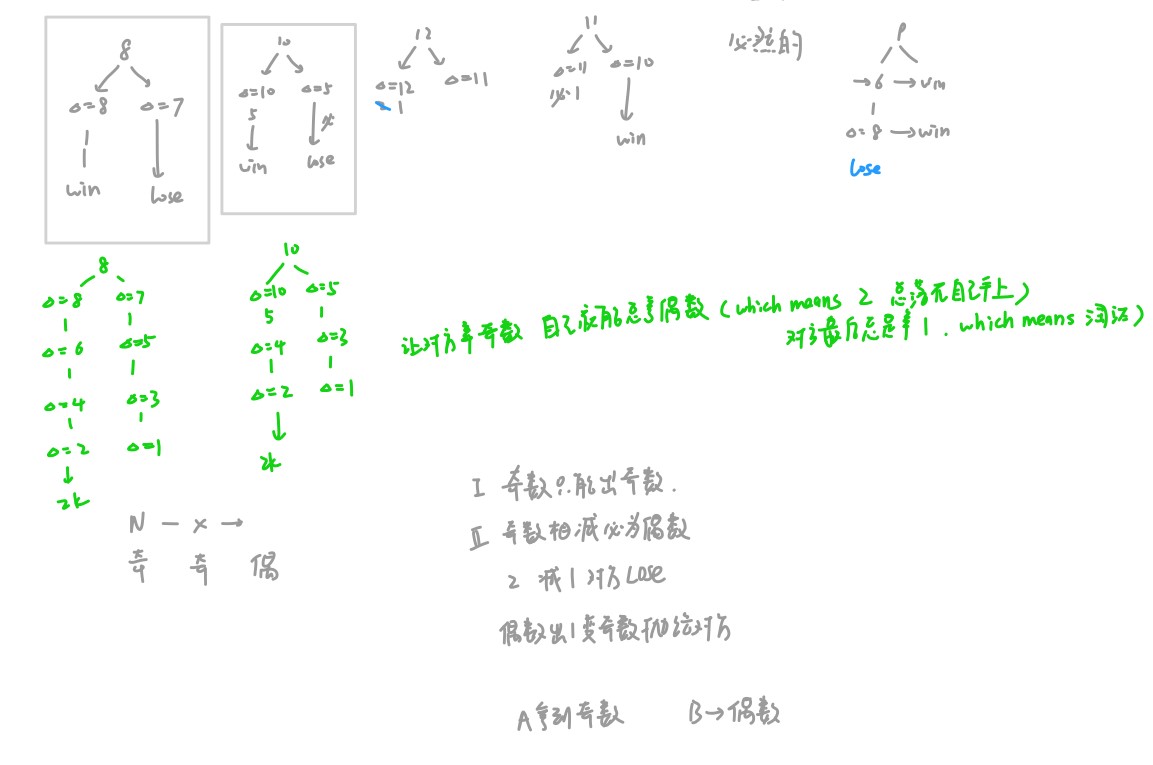 8
△=8 △=7
win lose
10
△=10 △=5
5
win lose
12
△=12 △=11
1
11
△=11 △=10
1
win
必然的
P
→6 →win
△=8 →win
lose
8
△=8 △=7
△=6 △=5
△=4 △=3
△=2 △=1
2k
10
△=10 △=5
5
△=4 △=3
△=2 △=1
2k
让对方拿奇数 自己就能总拿偶数 (which means 2 总落在自己手上)
对方最后总是拿1. which means 自己
N — x →
奇 奇 偶
I 奇数只能出奇数.
II 奇数相减必为偶数
2 减1 对方Lose
偶数出1变奇数抛给对方
A拿到奇数 B→偶数